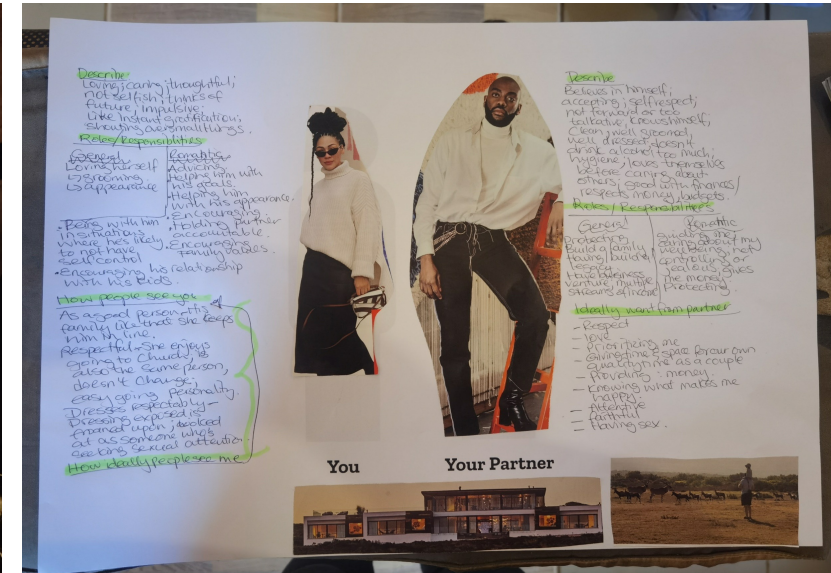 Describe
Loving; caring; thoughtful;
not selfish; thinks of
future; impulsive;
Like instant gratification;
showing over small things.
Roles/Responsibilities
General
Loving herself
↳ grooming
↳ appearance
Romantic
Advicing
Helping him with
his goals.
Helping him
with his appearance.
Encouraging.
Holding partner
accountable.
Encouraging
family values.
• Being with him
in situations
where he's likely
to not have
self control
• Encouraging his relationship
with his kids.
How people see you
As a good person - His
family like that she keeps
him in line.
Respectful - She enjoys
going to Church, is
also the same person,
doesn't change;
easy going personality.
Dresses respectably -
Dressing exposed is
frowned upon; looked
at as someone who's
seeking sexual attention.
How ideally people see me
You
Your Partner
Describe
Believes in himself;
accepting; self respect;
not forward or too
talkative; knows himself;
Clean; well groomed,
well dressed; doesn't
drink alcohol too much;
hygiene; loves themselves
before caring about
others; good with finances/
respects money, budgets.
Roles/Responsibilities
General
Protecting
Build a family
Having/building
legacy
Have business
venture, multiple
streams of income
Romantic
guiding me;
caring about my
well being, not
controlling or
jealous, gives
me money
Protecting
Ideally want from partner
- Respect
- love
- Prioritizing me
- Giving time & space for our own
quality time as a couple
- Providing: money.
- Knowing what makes me
happy.
- Attentive
- faithful
- Having sex.